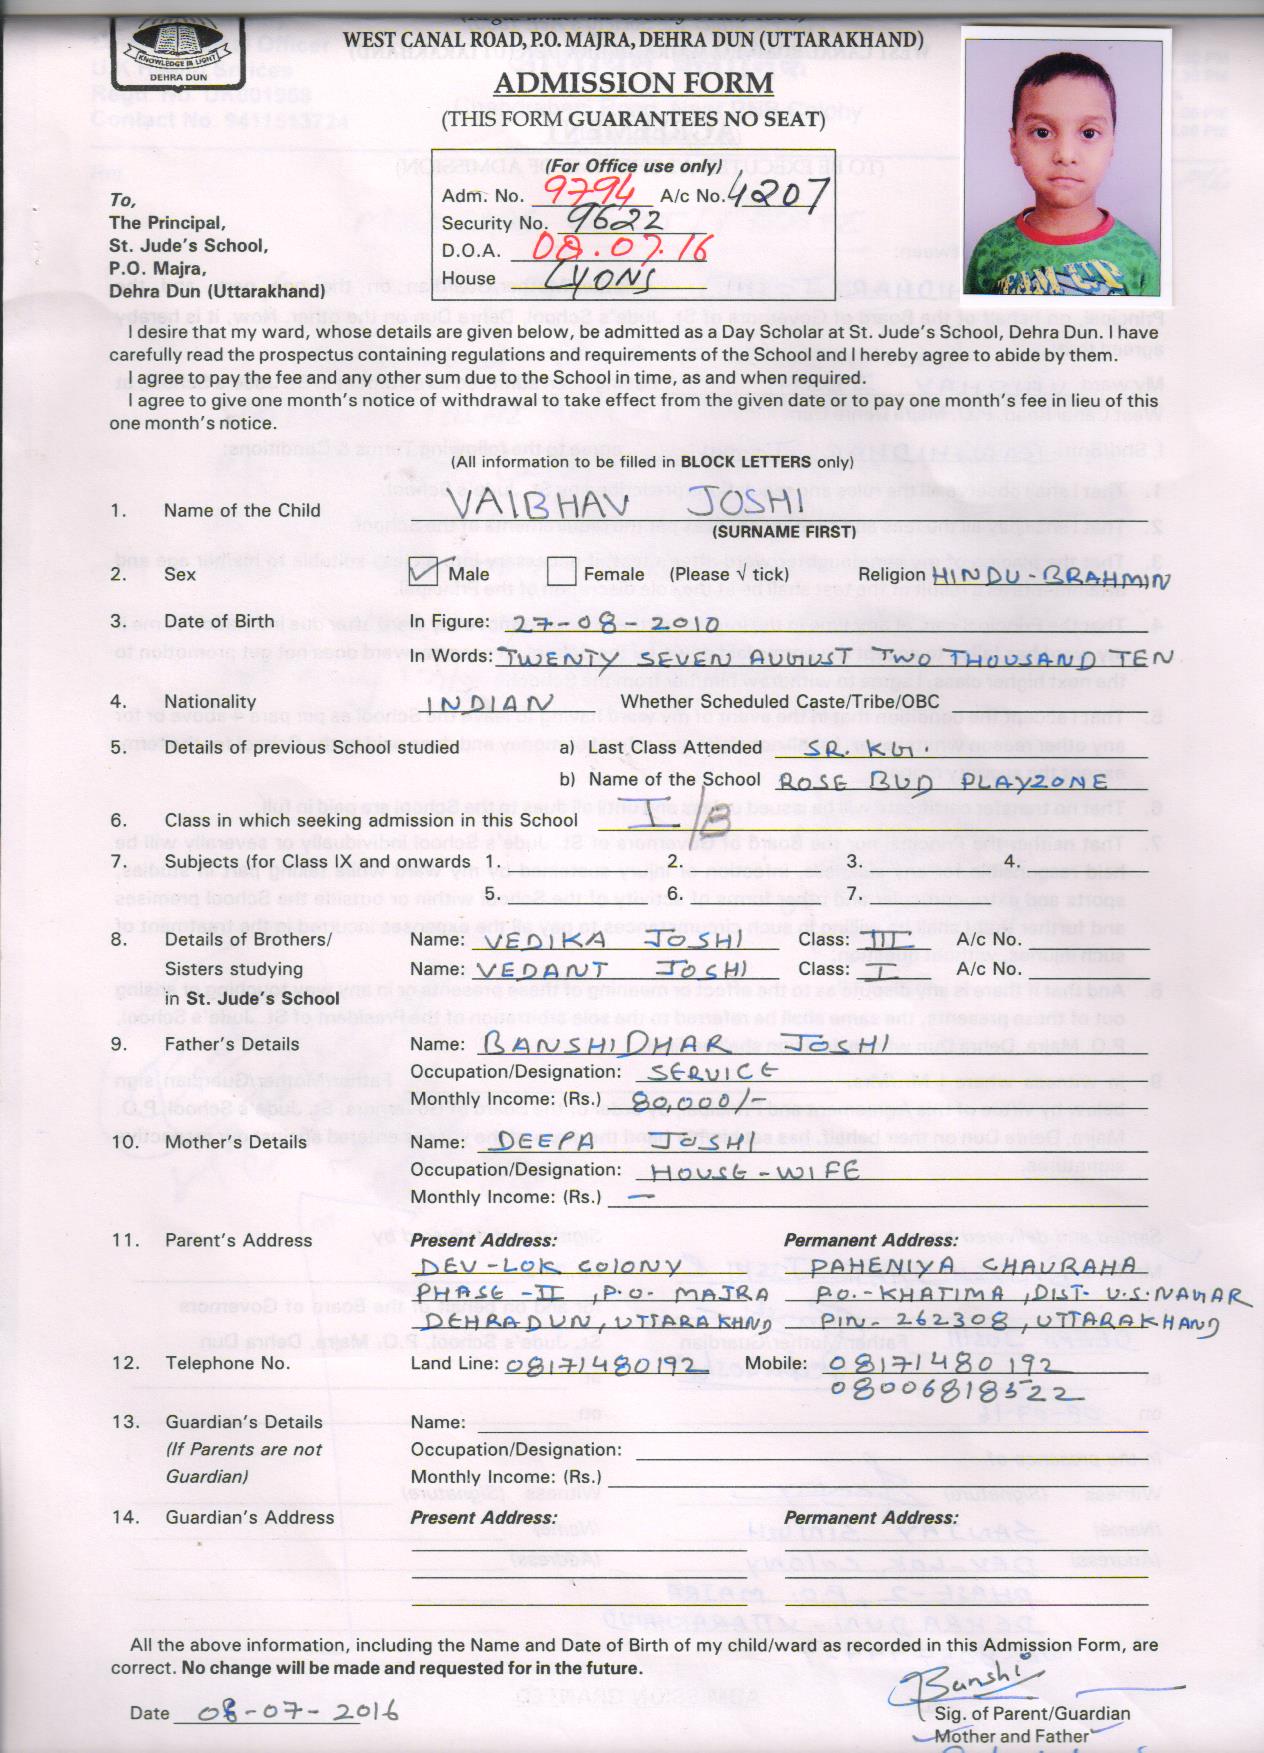 KNOWLEDGE IS LIGHT
DEHRA DUN
WEST CANAL ROAD, P.O. MAJRA, DEHRA DUN (UTTARAKHAND)
ADMISSION FORM
(THIS FORM GUARANTEES NO SEAT)
(For Office use only)
Adm. No. 9794 A/c No. 4207
Security No. 9622
D.O.A. 08.07.16
House LYONS
To,
The Principal,
St. Jude's School,
P.O. Majra,
Dehra Dun (Uttarakhand)
I desire that my ward, whose details are given below, be admitted as a Day Scholar at St. Jude's School, Dehra Dun. I have
carefully read the prospectus containing regulations and requirements of the School and I hereby agree to abide by them.
I agree to pay the fee and any other sum due to the School in time, as and when required.
I agree to give one month's notice of withdrawal to take effect from the given date or to pay one month's fee in lieu of this
one month's notice.
(All information to be filled in BLOCK LETTERS only)
1. Name of the Child VAIBHAV JOSHI
(SURNAME FIRST)
2. Sex Male Female (Please √ tick) Religion HINDU-BRAHMIN
3. Date of Birth In Figure: 27-08-2010
In Words: TWENTY SEVEN AUGUST TWO THOUSAND TEN
4. Nationality INDIAN Whether Scheduled Caste/Tribe/OBC
5. Details of previous School studied a) Last Class Attended SR. KG.
b) Name of the School ROSE BUD PLAYZONE
6. Class in which seeking admission in this School I/B
7. Subjects (for Class IX and onwards 1. 2. 3. 4.
5. 6. 7.
8. Details of Brothers/ Name: VEDIKA JOSHI Class: III A/c No.
Sisters studying Name: VEDANT JOSHI Class: I A/c No.
in St. Jude's School
9. Father's Details Name: BANSHIDHAR JOSHI
Occupation/Designation: SERVICE
Monthly Income: (Rs.) 80,000/-
10. Mother's Details Name: DEEPA JOSHI
Occupation/Designation: HOUSE-WIFE
Monthly Income: (Rs.) —
11. Parent's Address Present Address: Permanent Address:
DEV-LOK COLONY PAHENIYA CHAURAHA
PHASE-II, P.O. MAJRA P.O.-KHATIMA, DIST. U.S.NAGAR
DEHRADUN, UTTARAKHND PIN-262308, UTTARAKHAND
12. Telephone No. Land Line: 08171480192 Mobile: 08171480192
08006818522
13. Guardian's Details Name:
(If Parents are not Occupation/Designation:
Guardian) Monthly Income: (Rs.)
14. Guardian's Address Present Address: Permanent Address:
All the above information, including the Name and Date of Birth of my child/ward as recorded in this Admission Form, are
correct. No change will be made and requested for in the future.
Banshi
Date 08-07-2016
Sig. of Parent/Guardian
Mother and Father